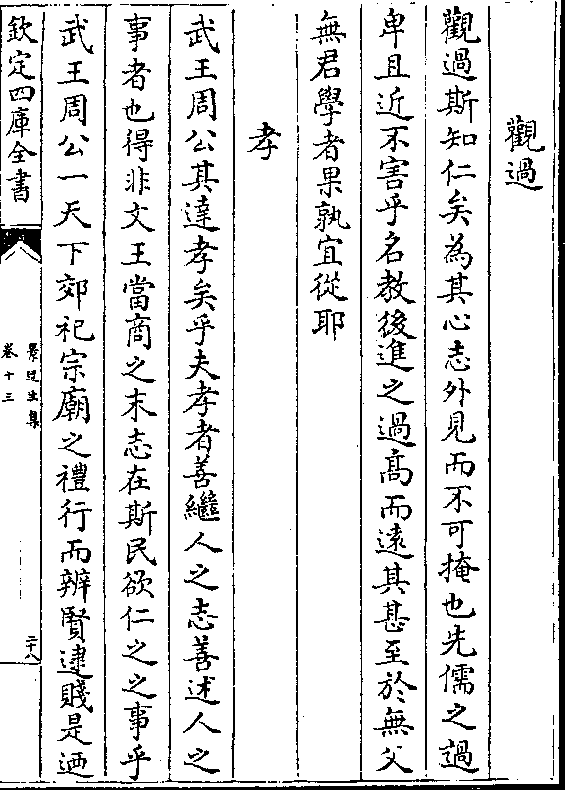 觀過
觀過斯知仁矣為其心志外見而不可掩也先儒之過
卑且近不害乎名教後進之過髙而遠其甚至於無父
無君學者果孰宜從耶
孝
武王周公其達孝矣乎夫孝者善繼人之志善述人之
事者也得非文王當商之末志在斯民欲仁之之事乎
武王周公一天下郊祀宗廟之禮行而辨賢逮賤是迺
欽定四庫全書
景迂生集
卷十三
二十八